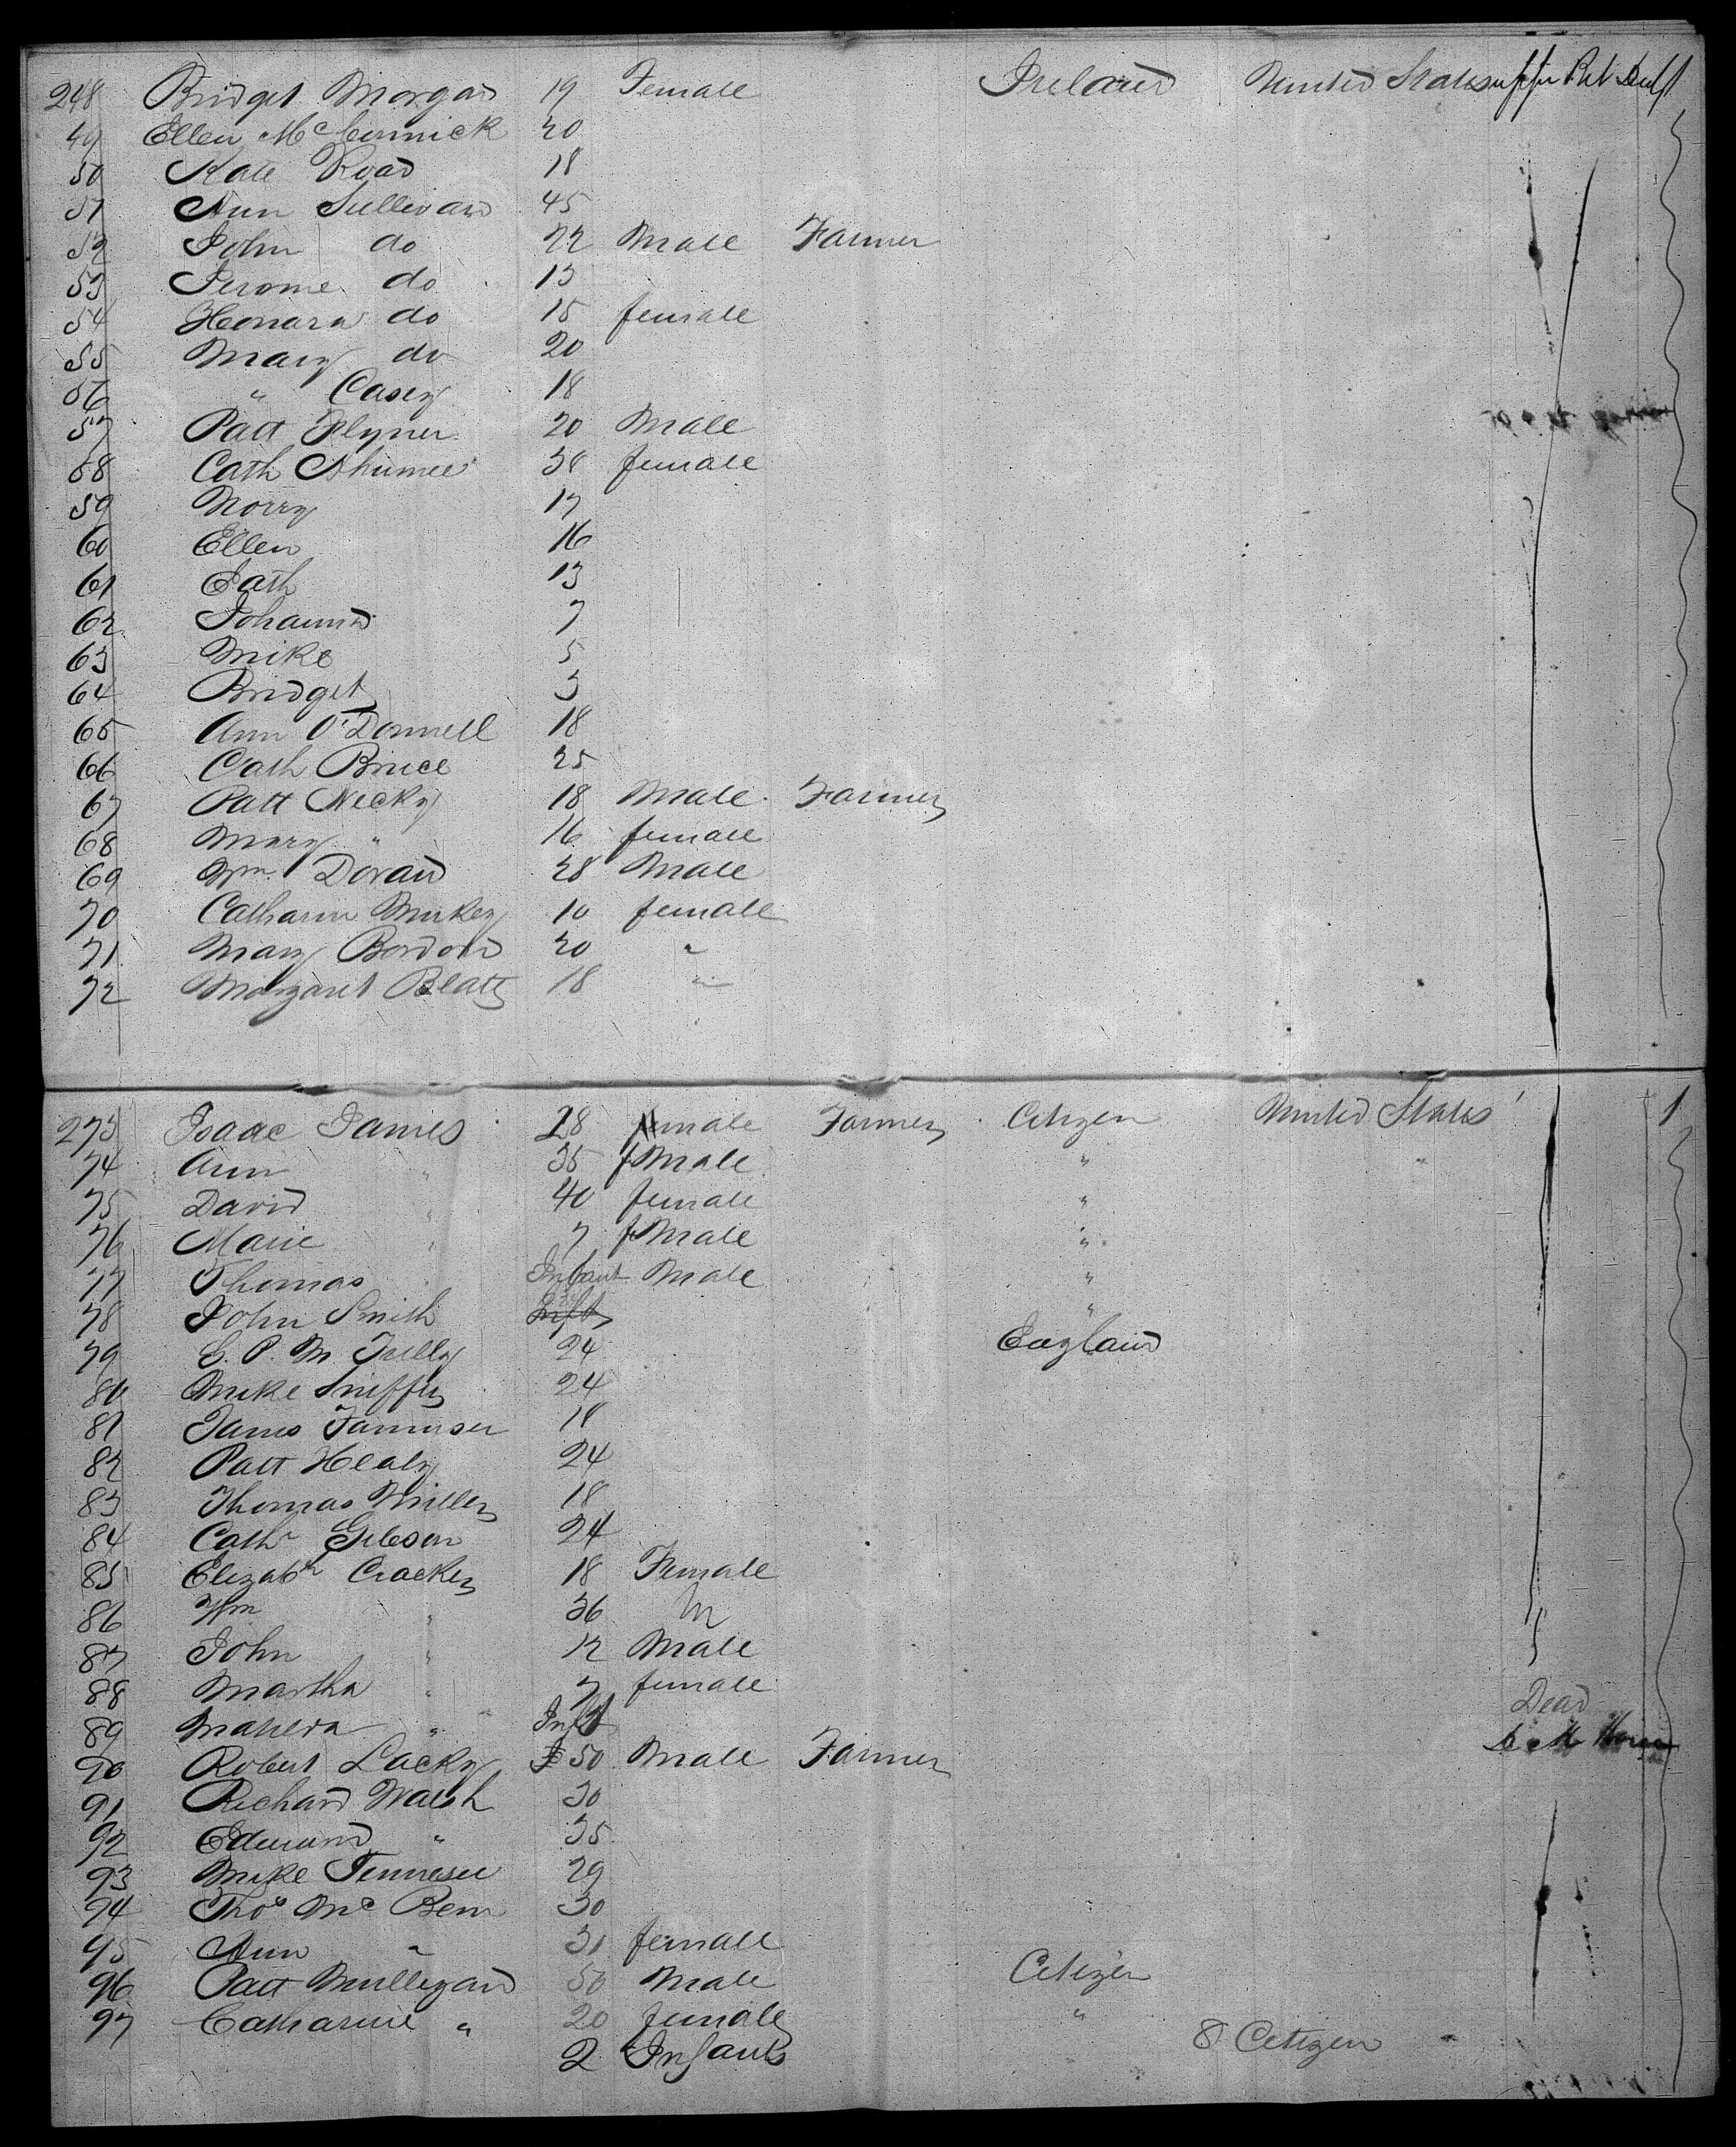 248 Bridget Morgan 19 Female Ireland United States
49 Ellen McCormick 20
50 Kate Road 18
51 Ann Sullivan 45
52 John do 22 Male Farmer
53 Jerome do 13
54 Honara do 15 female
55 Mary do 20
56 " Casey 18
57 Patt Flynn 20 Male
58 Cath 38 female
59 Norry 17
60 Ellen 16
61 Cath 13
62 Johanna 7
63 Mike 5
64 Bridget 3
65 Ann O'Donnell 18
66 Cath Bruce 25
67 Patt Necky 18 Male Farmer
68 Mary " 16 female
69 Wm. Doran 28 Male
70 Catharin 10 female
71 Mary 20 "
72 Margaret 18 "
273 Isaac James 28 male Farmer Citizen United States
74 Ann " 35 fMale "
75 David " 40 female "
76 Marie " 7 fMale "
77 Thomas " Infant Male "
78 John Smith Inft "
79 24 England
80 Mike 24
81 James 18
82 Patt Healy 24
83 Thomas Miller 18
84 Cath Gibson 24
85 Elizabth Cracker 18 Female
86 Wm " 36 M
87 John " 12 Male
88 Martha " 7 female
89 " Inft Dead
90 Robert Lacky 50 Male Farmer
91 Richard Walsh 30
92 Edmund " 35
93 Mike 29
94 Thos Mc Bem 30
95 Ann " 31 female
96 Patt Mulligan 50 Male Citizen
97 Catharine " 20 female "
2 Infants 8 Citizen